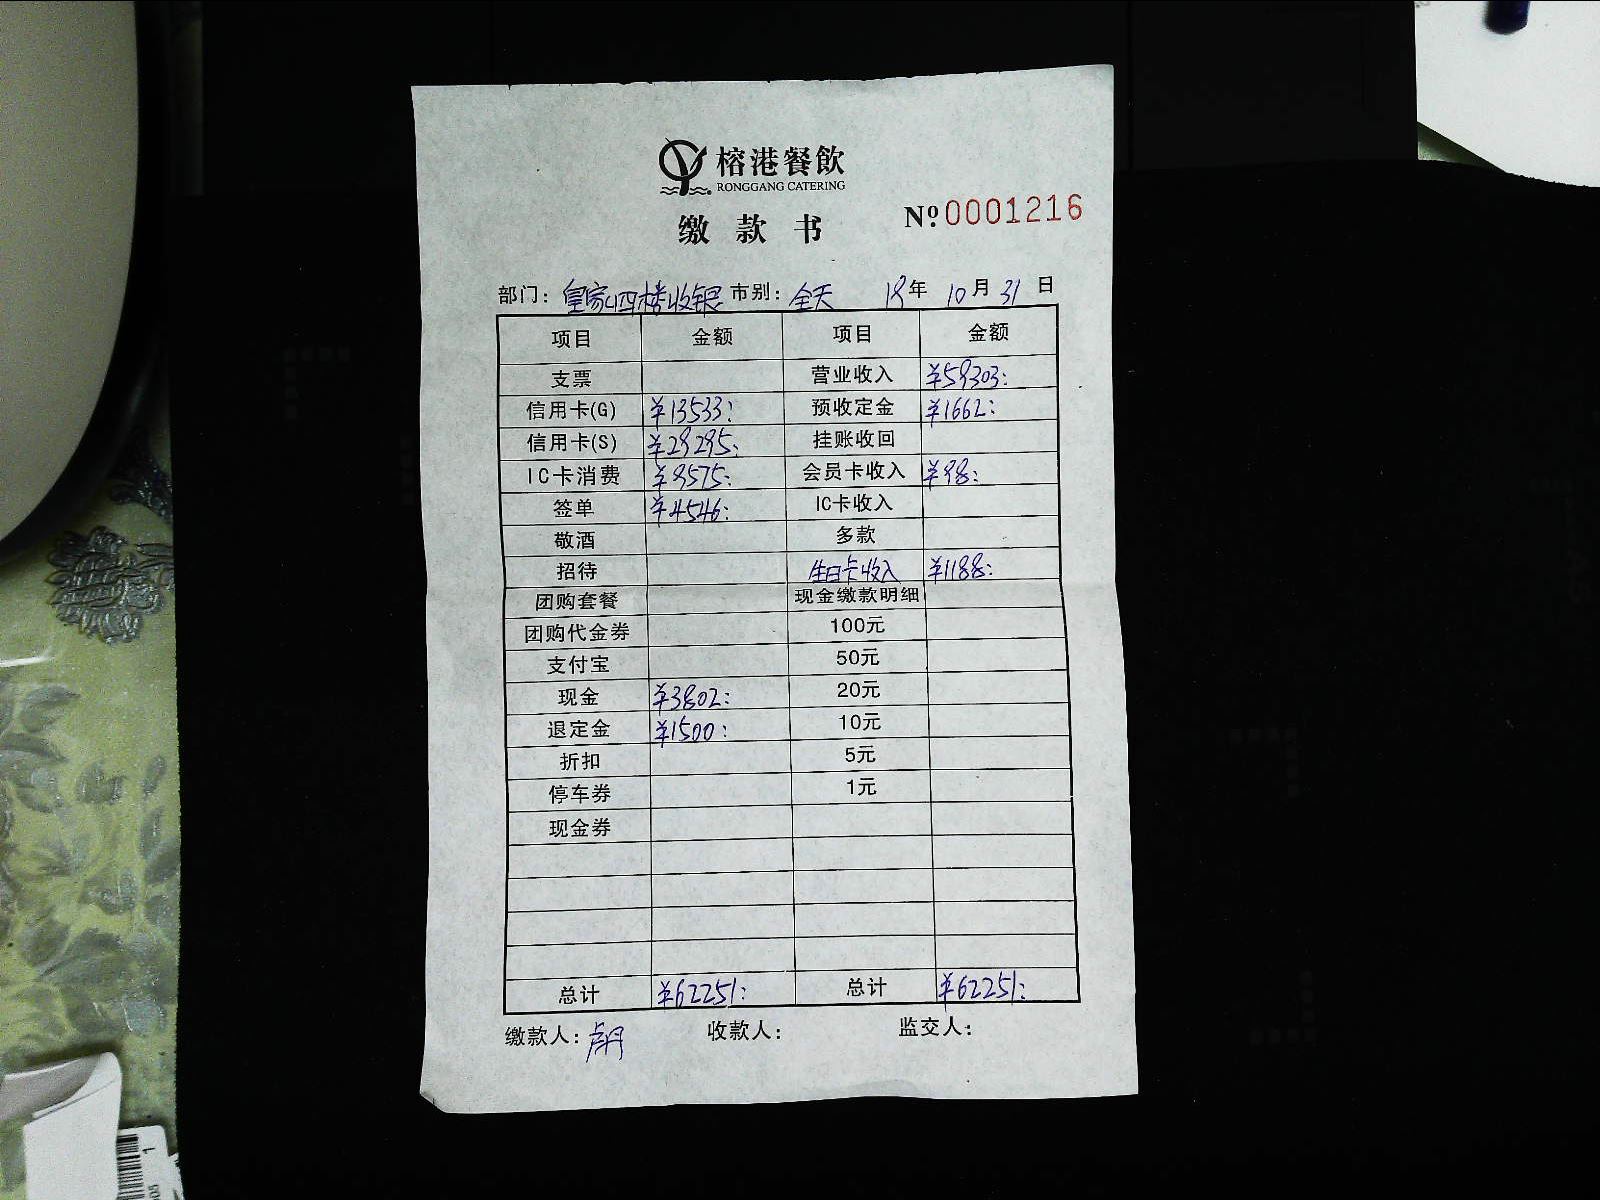 榕港餐飲
RONGGANG CATERING
缴款书
Nº 0001216
部门：皇家四楼收银 市别：全天 18年 10月 31日
项目 金额 项目 金额
支票 营业收入 ¥59303:
信用卡(G) ¥13533: 预收定金 ¥1662:
信用卡(S) ¥29295: 挂账收回
IC卡消费 ¥9575: 会员卡收入 ¥98:
签单 ¥4546: IC卡收入
敬酒 多款
招待 生日卡收入 ¥1188:
团购套餐 现金缴款明细
团购代金券 100元
支付宝 50元
现金 ¥3802: 20元
退定金 ¥1500: 10元
折扣 5元
停车券 1元
现金券
总计 ¥62251: 总计 ¥62251:
缴款人： 收款人： 监交人：